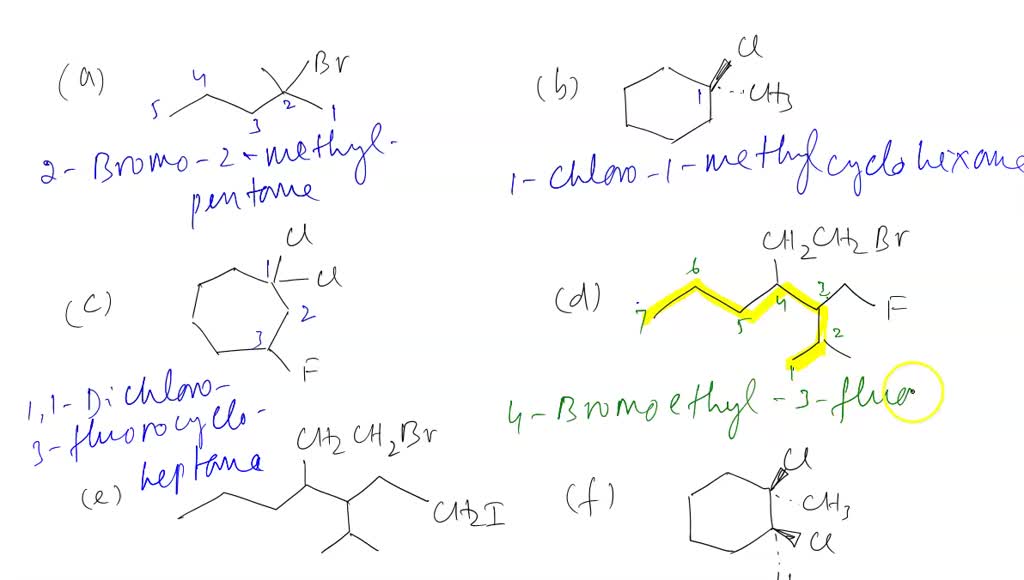 (a)
Br
5 4 3 2 1
2-Bromo-2-methyl-
pentane
(b)
Cl
1
CH3
1-chloro-1-methylcyclohexane
(c)
Cl
Cl
1
2
3
F
1,1-Dichloro-
3-fluorocyclo-
heptane
(d)
CH2CH2Br
7 6 5 4 3 2 1
F
4-Bromoethyl-3-fluo
(e)
CH2CH2Br
CH2I
(f)
Cl
CH3
Cl